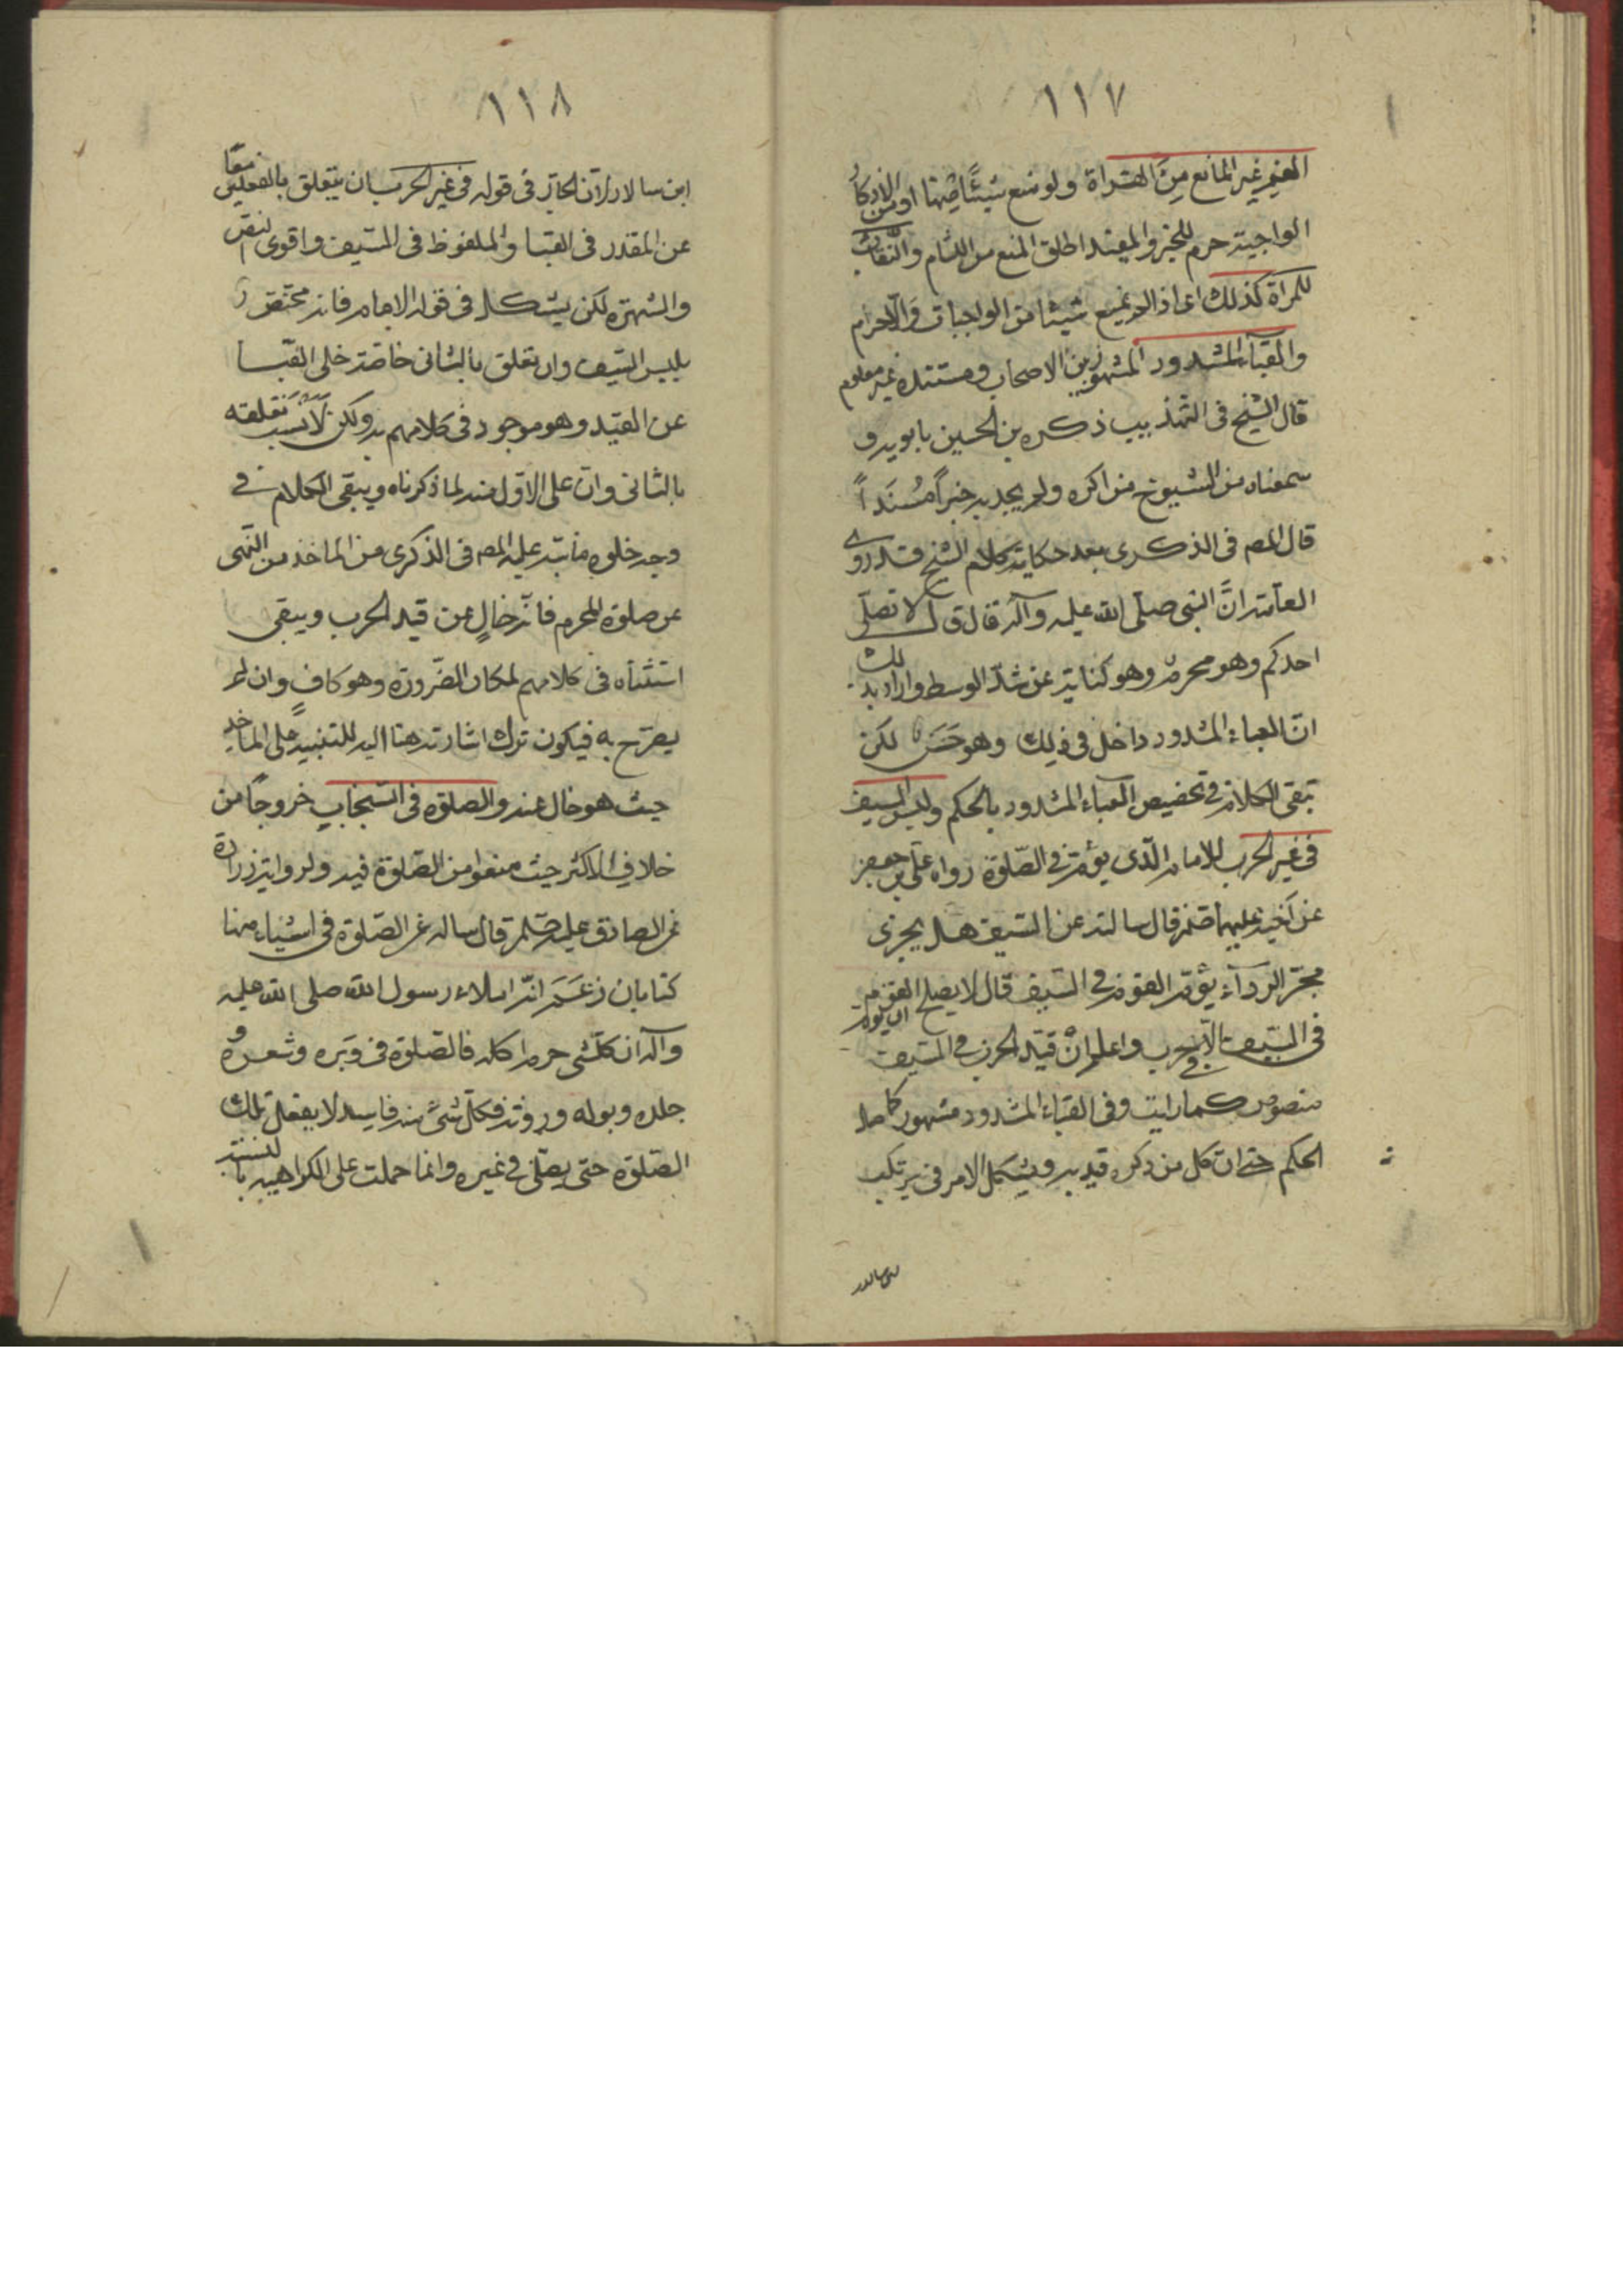 ١١٧
الغير المانع من القراءة ولو منع شيئاً منها او من الاذكار
الواجبة حرم للخبر والمفيد اطلق المنع من اللثام والنقاب
للمرأة كذلك اى اذا لم يمنع شيئا من الواجبات والا حرم
والقباء المشدود المشهور بين الاصحاب ومستنده غير معلوم
قال الشيخ فى التهذيب ذكره بن الحسين بابويه و
سمعناه من الشيوخ مذاكرة ولم يجد به خبراً مُسنَداً
قال المص فى الذكرى بعد حكاية كلام الشيخ قد روى
العامة انّ النبى صلّى الله عليه وآله قال لا تصلّى
احدكم وهو محرم وهو كناية عن شدّ الوسط واراد بذلك
انّ القباء المشدود داخل فى ذلك وهو حَسَنٌ لكن
تبقى الكلام فى تخصيص القباء المشدود بالحكم ولبس السيف
فى غير الحرب للامام الّذى يؤم فى الصّلوة رواه علّى بن جعفر
عن اخيه عليهما قال سالته عن السيف هل يجرى
مجرى الردآء يؤم القوم فى السيف قال لا يصلح ان يؤم القوم
فى السيف الّا فى حرب واعلم انّ قيد الحرب فى السيف
منصوص كما رايت وفى القباء المشدود مشهور كاصل
الحكم حتى انّ كل من ذكره قيد به ويشكل الامر فى تركيب
١١٨
ابن سالار لانّ الجار فى قوله فى غير الحرب ان يتعلق بالفعلين معاً
عن المقدر فى القبا والملفوظ فى السيف واقوى
والشهرة لكن يشكل فى قوله الامام فانه مختص
بلبس السيف وان تعلق بالثانى خاصة خلى القبا
عن القيد وهو موجود فى كلامهم به ولكن لا نسب تعلقه
بالثانى وان على الاول منه لما ذكرناه ويبقى الكلام فى
وجه خلوه ما نبّه عليه المص فى الذكرى من الماخذ من النّهى
عن صلوة المحرم فانّه خالٍ عن قيد الحرب ويبقى
استثناه فى كلامهم لمكان الضّرورة وهو كافٍ وان لم
يصرّح به فيكون ترك اشارته هنا اليه للتنبيه على الماخذ
حيث هو خال عنه والصلوة فى السنجاب خروجاً من
خلاف الاكثر حيث منعوا من الصّلوة فيه ولرواية زرارة
عن الصادق عليه قال ساله عن الصّلوة فى اشياء منها
كتابا زعم انّه املاء رسول الله صلى الله عليه
وآله ان كلّ شى حرم اكله فالصّلوة فى وبره وشعره و
جلده وبوله وروثه فكلّ شئ منه فاسد لا يقبل تلك
الصّلوة حتى يصلّى فى غيره وانما حملت على الكراهية
ابن سالار